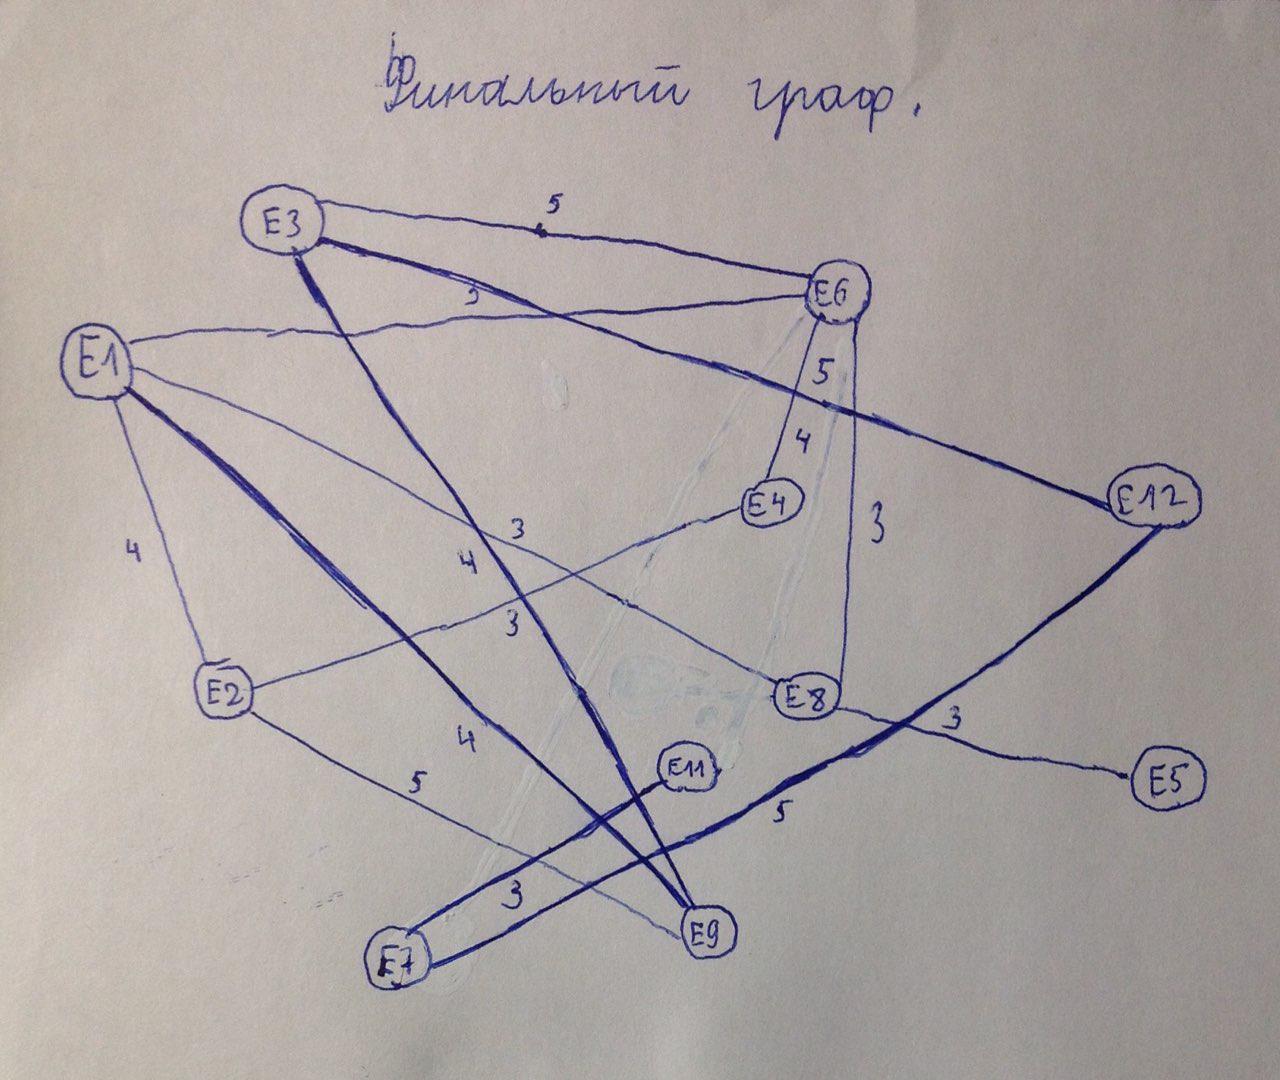 Финальный граф.
5
E3
E6
3
E1
5
4
E4
E12
3
3
4
4
3
E2
E8
3
4
E11
E5
5
5
3
E9
E7